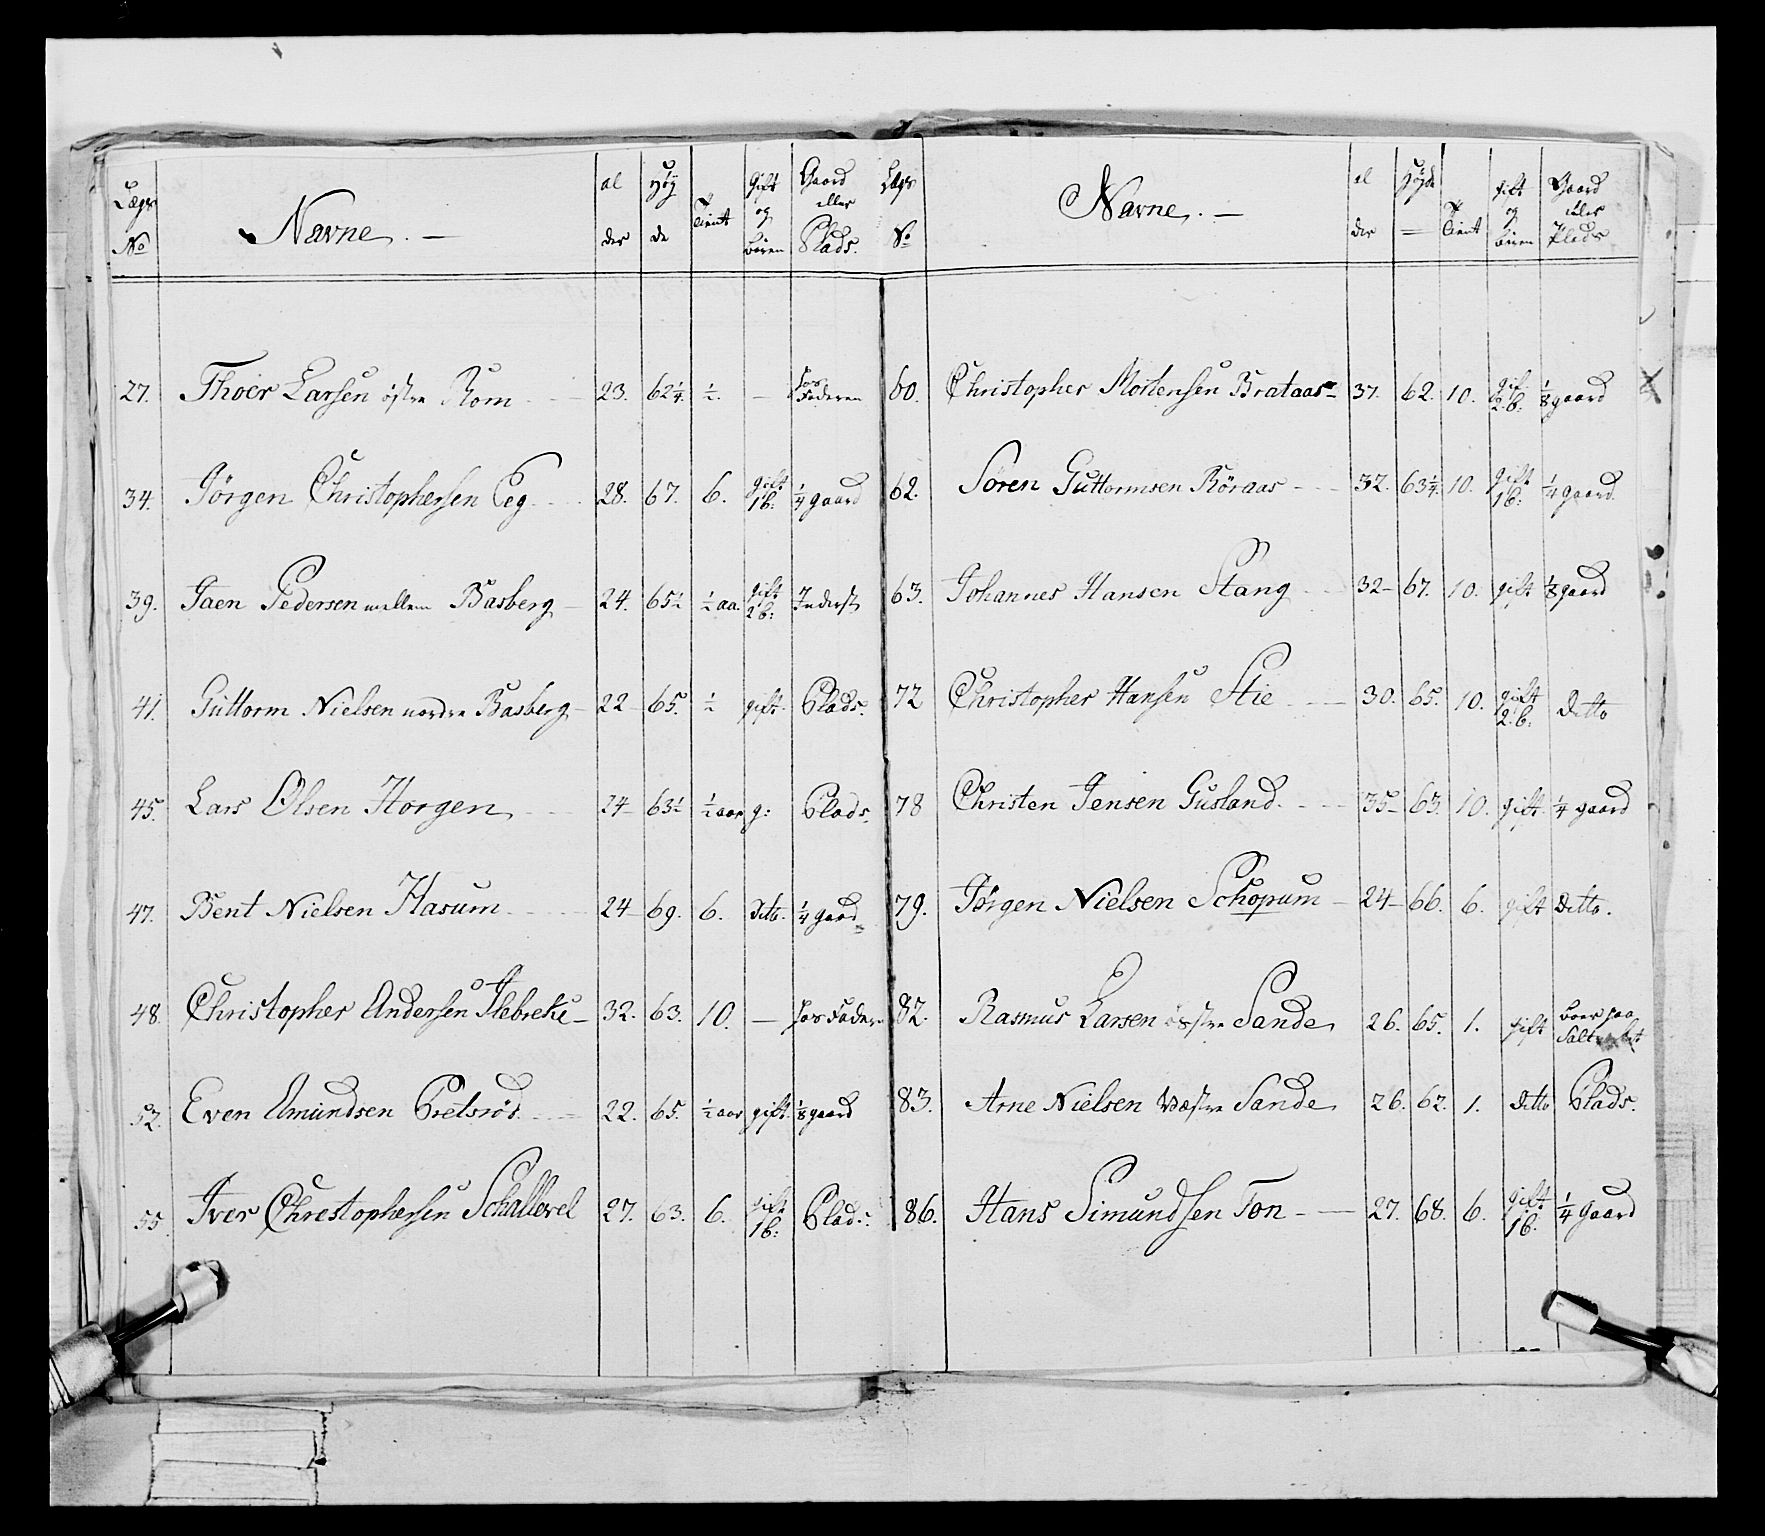 Lægs No Navne. — al der Høy de Tient Gift og Bören Gaard eller Plads.
27. Thoer Larsen östre Rom 23. 62 1/4. 1/2. — hos Faderen
34. Jörgen Christophersen Eeg 28. 67. 6. gift 1 b: 1/4 gaard
39. Jaen Pedersen mellem Basberg 24. 65 1/2 1/2 aa. gift 2 b: Inderst
41. Guttorm Nielsen nordre Basberg 22 65. 1/2 gift. Plads.
45. Lars Olsen Horgen 24 63 1/2 1/2 aar g: Plads.
47. Bent Nielsen Hasum 24 69. 6. Ditto. 1/4 gaard
48. Christopher Andersen Ilebreke 32. 63. 10. — hos Fader
52. Even Amundsen Pretsröd 22. 65. 1/2 aar gift. 1/8 gaard
55. Iver Chrestophersen Schallevel 27. 63. 6. gift 1 b: Plads.
Lægs No Navne. — al der Høyde Tient gift og Bören Gaard eller Plads
60. Christopher Mortensen Brataas 37. 62. 10. gift 2 b: 1/8 gaard
62. Sören Guttormsen Röraas 32. 63 1/4. 10. gift 1 b: 1/4 gaard.
63. Johannes Hansen Stang 32 67. 10. gift 1/8 gaard
72 Christopher Hansen Stie 30. 65. 10. gift 2. b: Ditto
78 Christen Jensen Gusland. 35 63. 10. gift. 1/4 gaard
79. Jörgen Nielsen Schopum 24 66. 6. gift Ditto.
82. Rasmus Larsen östre Sande 26. 65. 1. gift boer paa
83. Arne Nielsen Væstre Sande 26. 62. 1. Ditto Plads.
86. Hans Simundsen Ton 27. 68. 6. gift 1 b. 1/4 Gaard